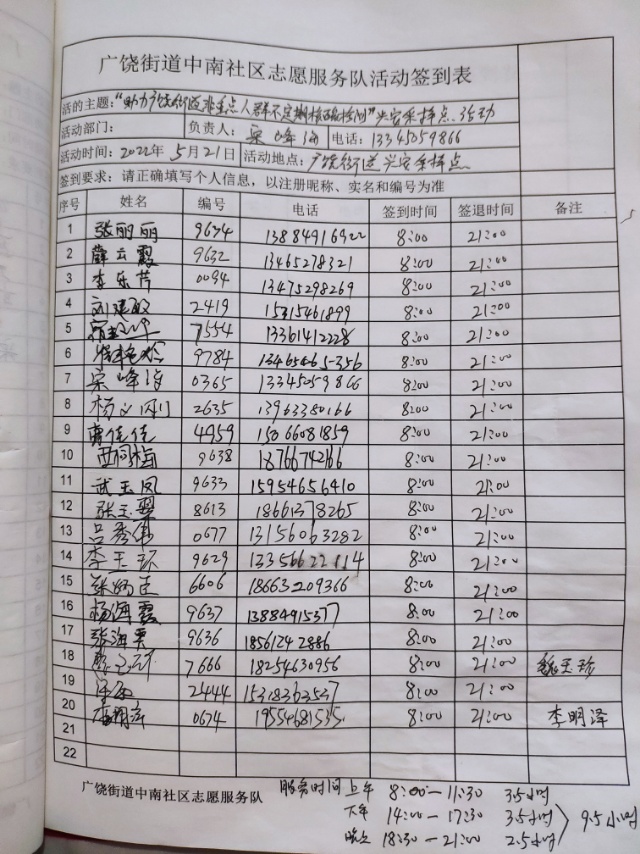 广饶街道中南社区志愿服务队活动签到表
活的主题:"助力广饶街道非重点人群不定期核酸检测"兴安采样点活动
活动部门: 负责人:宋峰海 电话:13345059866
活动时间:2022年5月21日 活动地点:广饶街道兴安采样点
签到要求:请正确填写个人信息,以注册昵称、实名和编号为准
序号 姓名 编号 电话 签到时间 签退时间 备注
1 张丽丽 9634 13884916922 8:00 21:00
2 薛云霞 9632 13465278321 8:00 21:00
3 李乐芹 0094 13475298269 8:00 21:00
4 刘建敏 2419 15315461899 8:00 21:00
5 7554 13361412228 8:00 21:00
6 9784 13465465356 8:00 21:00
7 宋峰海 0365 13345059866 8:00 21:00
8 杨 2635 13963380166 8:00 21:00
9 佳佳 4959 15066081859 8:00 21:00
10 9638 18766742166 8:00 21:00
11 武玉凤 9633 15954656410 8:00 21:00
12 张玉翠 8613 18661378265 8:00 21:00
13 吕秀伟 0677 13156063282 8:00 21:00
14 李玉环 9629 13356622114 8:00 21:00
15 6606 18663209366 8:00 21:00
16 杨海霞 9637 13884915377 8:00 21:00
17 张海英 9636 18561242886 8:00 21:00
18 7666 18254630956 8:00 21:00 魏玉珍
19 2444 15318363537 8:00 21:00
20 李明泽 0674 19554681535 8:00 21:00 李明泽
21
22
广饶街道中南社区志愿服务队 服务时间 上午 8:00—11:30 3.5小时
下午 14:00—17:30 3.5小时 9.5小时
晚上 18:30—21:00 2.5小时